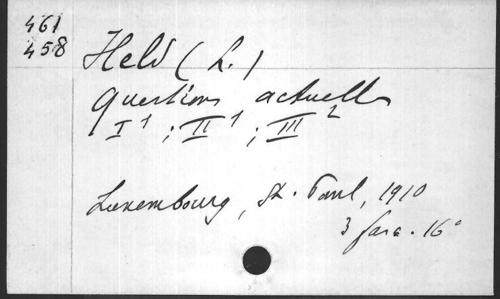 461
458
Held (L.)
Questions actuelles
I¹ ; II¹ ; III²
Luxembourg, St. Paul, 1910
3 fasc. 16°